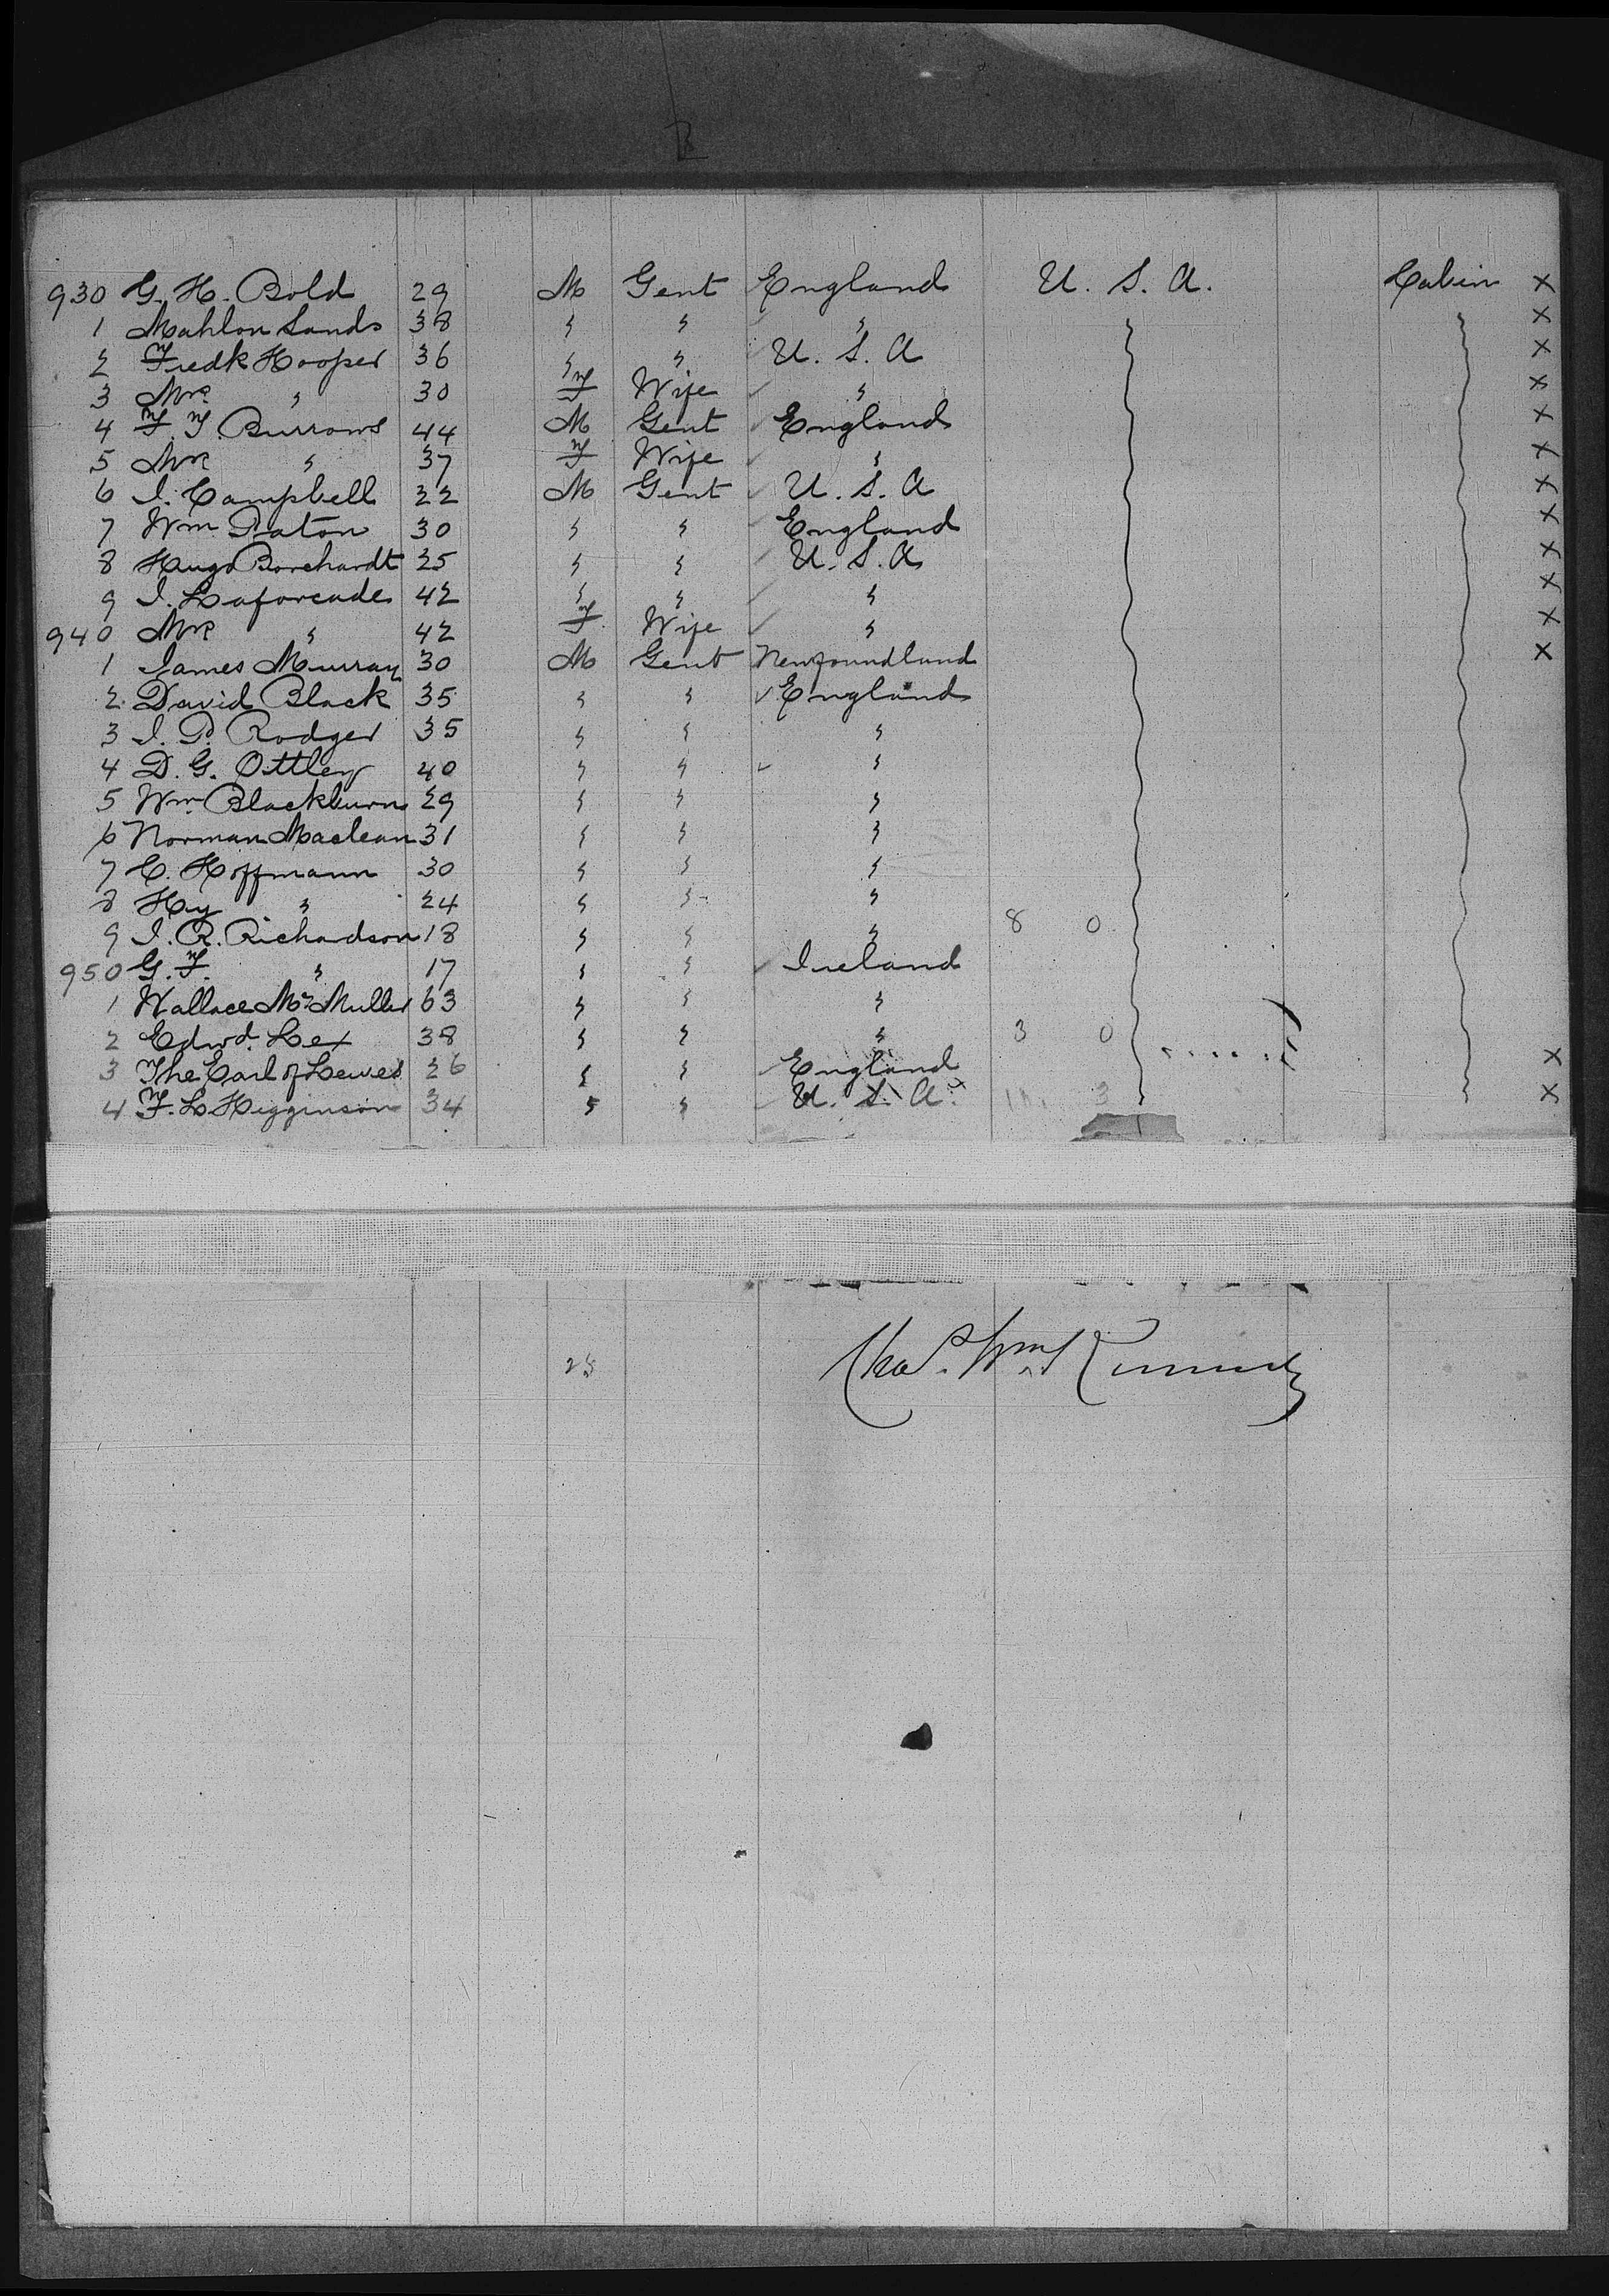 930 G. H. Bold 29 M Gent England U. S. A. Cabin X
1 Mahlon Sands 38 " " " X
2 Fredk Hooper 36 " " U. S. A X
3 Mrs " 30 F Wife " X
4 F. T. Burrows 44 M Gent England X
5 Mrs " 37 F Wife " X
6 J. Campbell 22 M Gent U. S. A X
7 Wm Paton 30 " " England X
8 Hugo Borchardt 25 " " U. S. A X
9 J. Laforcade 42 " " " X
940 Mrs " 42 F Wife " X
1 James Murray 30 M Gent Newfoundland X
2 David Black 35 " " England
3 J. P. Rodger 35 " " "
4 D. G. Ottley 40 " " "
5 Wm Blackburn 29 " " "
6 Norman Maclean 31 " " "
7 C. Hoffmann 30 " " "
8 Hy " 24 " " "
9 J. R. Richardson 18 " " " 8 0
950 G. F. " 17 " " Ireland
1 Wallace Mc Muller 63 " " "
2 Edwd. Lex 38 " " " 3 0
3 The Earl of Lewes 26 " " England X
4 F. L. Higginson 34 " " U. S. A. 3 X
28
Chas. Wm Kennedy